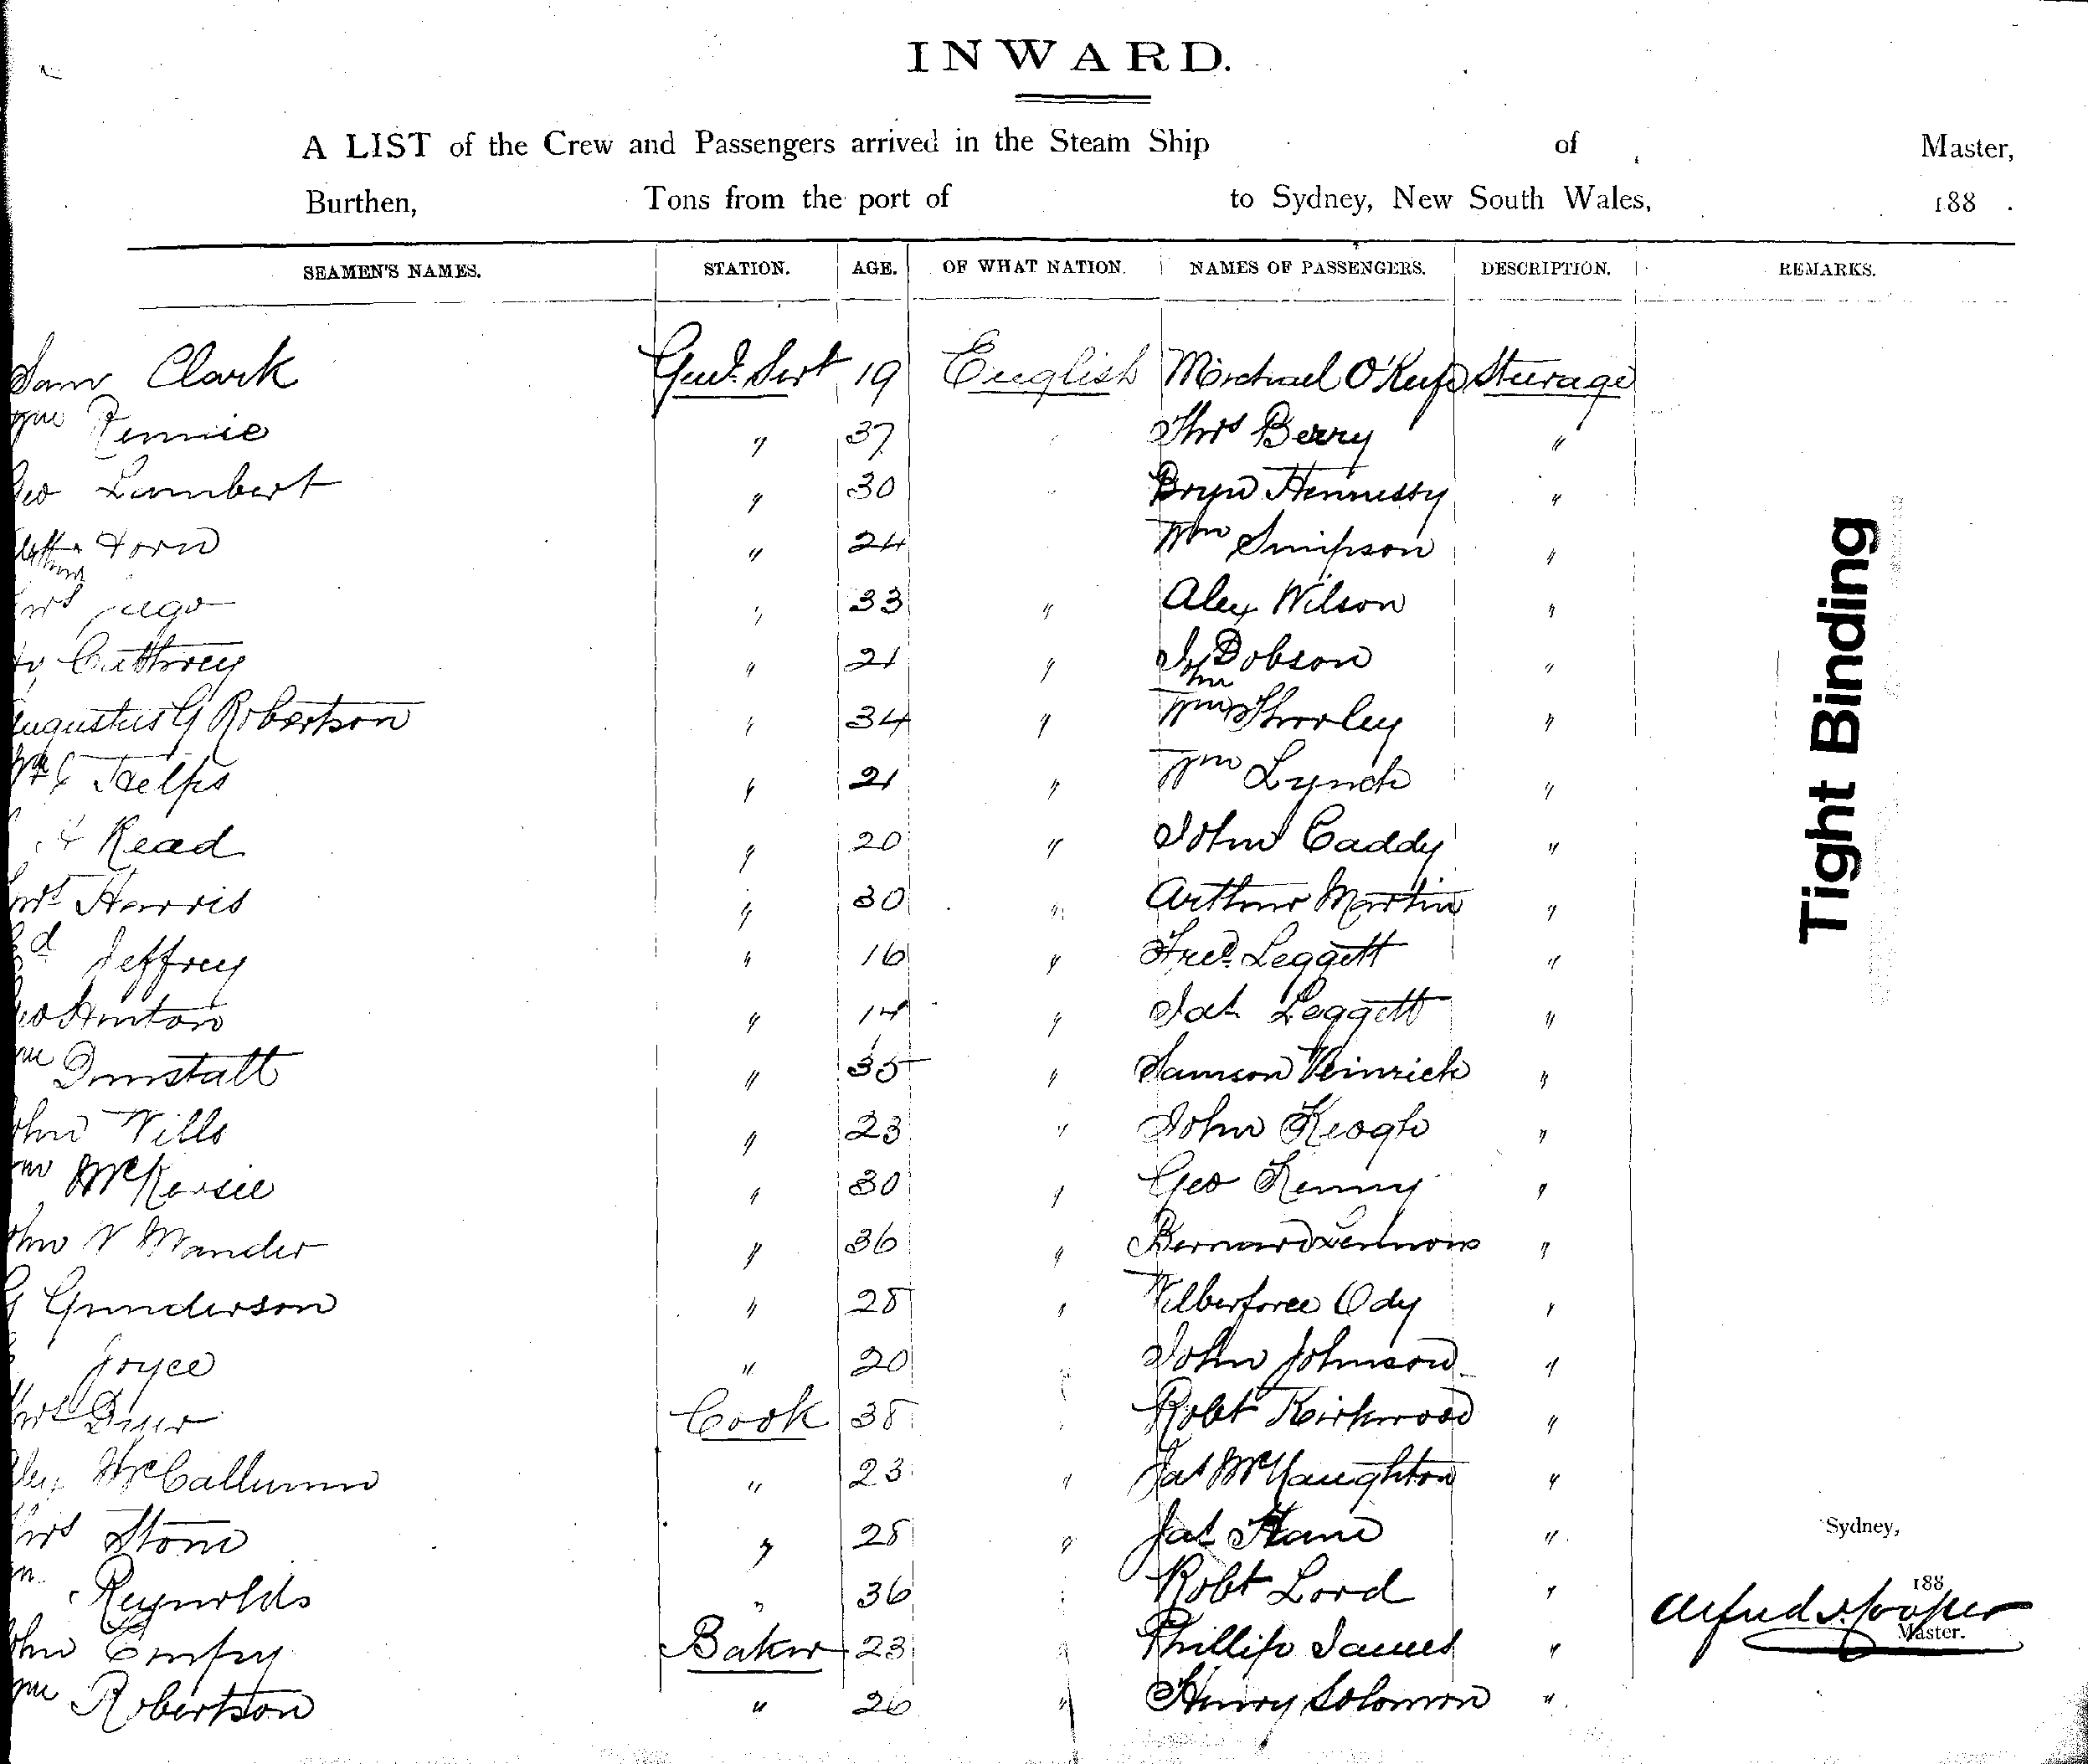 INWARD.
A LIST of the Crew and Passengers arrived in the Steam Ship of Master,
Burthen, Tons from the port of to Sydney, New South Wales, 188 .
SEAMEN'S NAMES. STATION. AGE. OF WHAT NATION. NAMES OF PASSENGERS. DESCRIPTION. REMARKS.
Sam Clark Genl. Servt 19 English Michael O'Keefe Steerage
Wm Rennie " 37 Thos Berry "
Geo Lambert " 30 Bryn Hennessy "
" 24 Wm Simpson "
" 33 " Alex Wilson "
Cuthrey " 21 " John Dobson "
Augustus G Robertson " 34 " Wm Thorley "
Wm C " 21 " Wm Lynch "
Read " 20 " John Caddy "
Harris " 30 " Arthur Martin "
Jeffrey " 16 " Fred. Leggett "
Geo Hinton " 14 " Jas Leggett "
Wm Dunstall " 35 " Samson "
John Wills " 23 " John Keogh "
McKersie " 30 " Geo Kenny "
John W Wander " 36 " Bernard Lennon "
G Gunderson " 28 " Wilberforce Ody "
Joyce " 20 " John Johnson "
Thos Dyer Cook 38 " Robt Kirkwood "
Alex McCallum " 23 " Jas McNaughton "
Thos Stone " 28 " Jas Kane "
Reynolds " 36 " Robt Lord "
John Empy Baker 23 " Phillip James "
Wm Robertson " 26 " Henry Solomon "
Tight Binding
Sydney,
188
Alfred Cooper
Master.